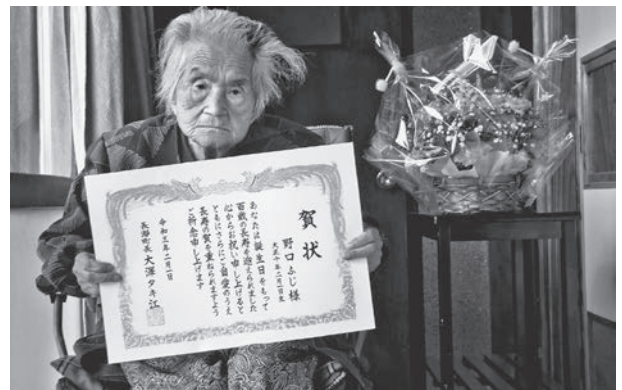 賀状
野口ふじ様
大正十年二月一日生
あなたは誕生日をもって
百歳の長寿を迎えられました
心からお祝い申し上げると
ともにさらにご自愛のうえ
長寿の賀を重ねられますよう
ご祈念申し上げます
令和三年二月一日
長瀞町長 大澤タキ江